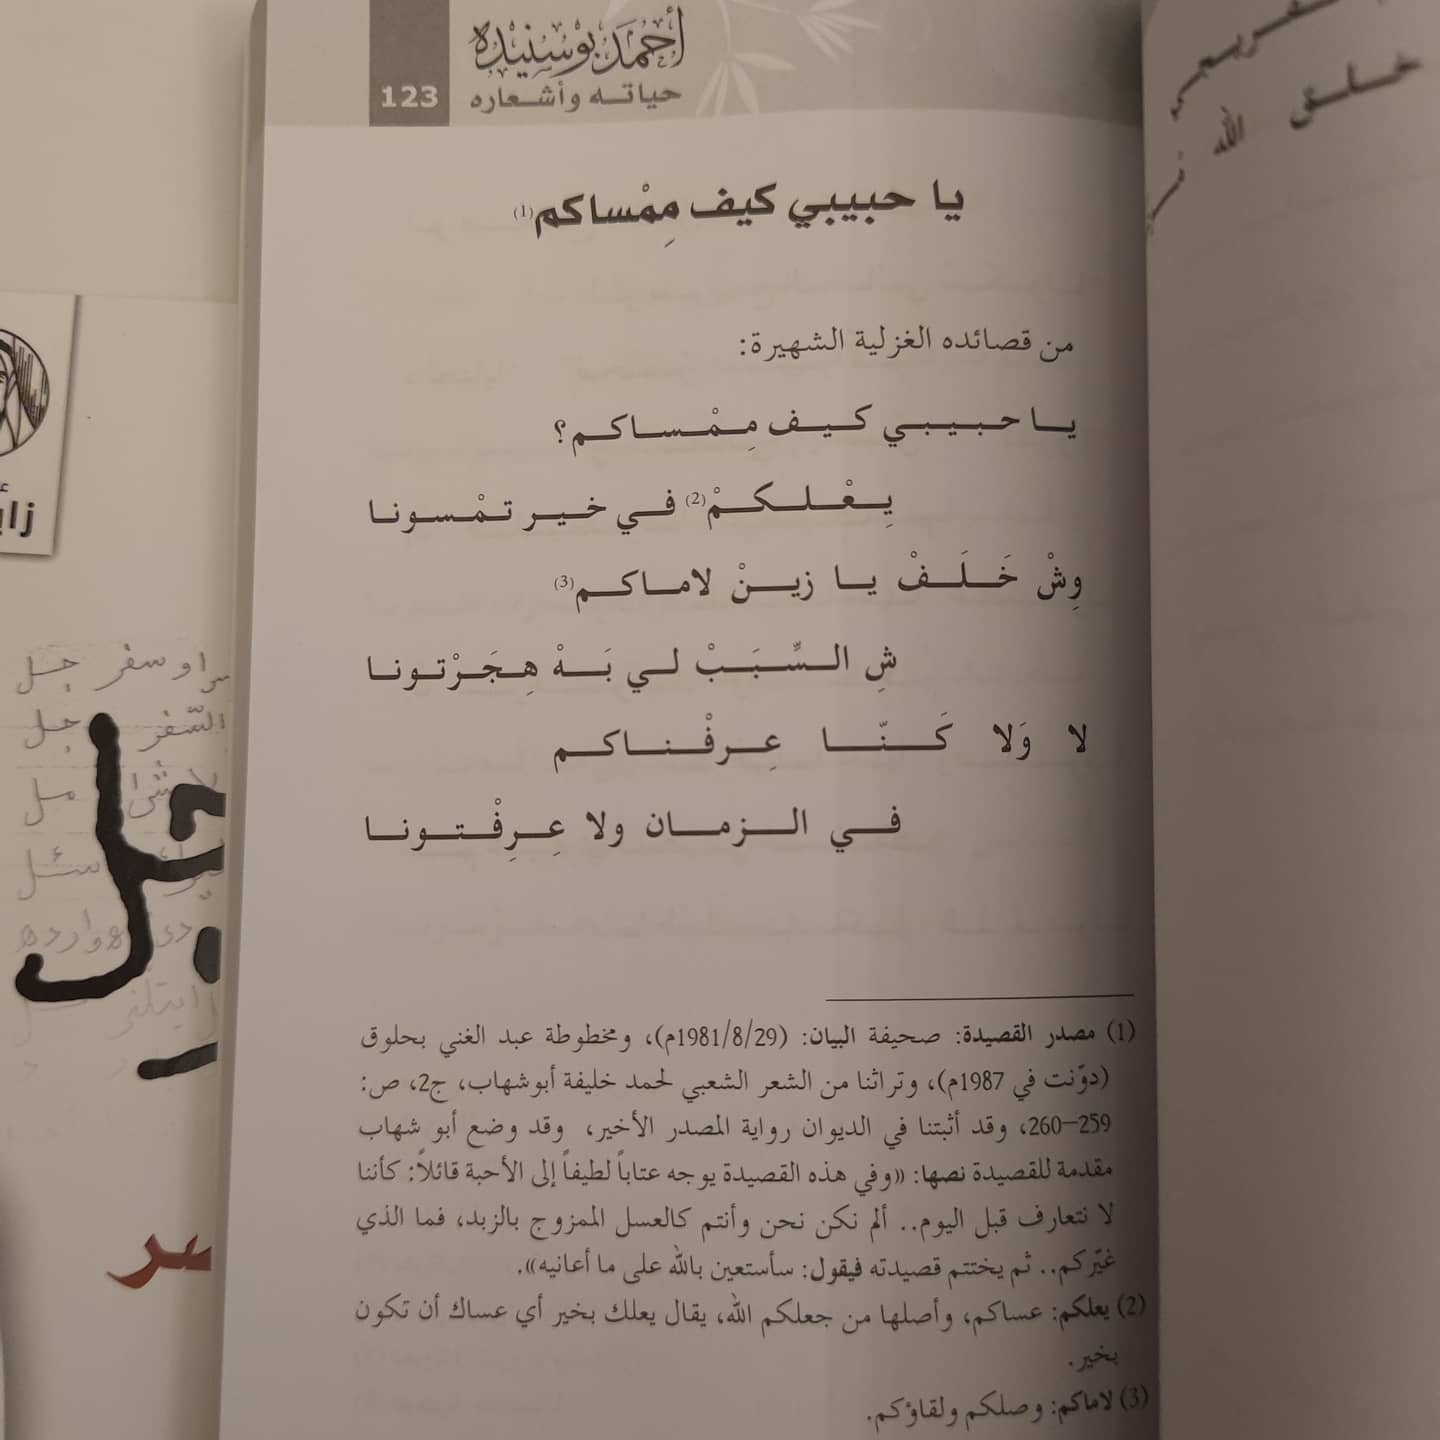 أحمد بوسنيده
حياته وأشعاره
123
يا حبيبي كيف مِمْساكم(1)
من قصائده الغزلية الشهيرة:
يا حبيبي كيف مِمْساكم؟
يِعْلكمْ(2) في خير تمْسونا
وِشْ خَلَفْ يا زينْ لاماكم(3)
شِ السِّبَبْ لي بَهْ هِجَرْتونا
لا وَلا كَنّا عِرفْناكم
في الزمان ولا عِرِفْتونا
(1) مصدر القصيدة: صحيفة البيان: (1981/8/29م)، ومخطوطة عبد الغني بحلوق
(دوّنت في 1987م)، وتراثنا من الشعر الشعبي لحمد خليفة أبوشهاب، ج2، ص:
259–260، وقد أثبتنا في الديوان رواية المصدر الأخير، وقد وضع أبو شهاب
مقدمة للقصيدة نصها: «وفي هذه القصيدة يوجه عتاباً لطيفاً إلى الأحبة قائلاً: كأننا
لا نتعارف قبل اليوم.. ألم نكن نحن وأنتم كالعسل الممزوج بالزبد، فما الذي
غيّركم.. ثم يختتم قصيدته فيقول: سأستعين بالله على ما أعانيه».
(2) يعلكم: عساكم، وأصلها من جعلكم الله، يقال يعلك بخير أي عساك أن تكون
بخير.
(3) لاماكم: وصلكم ولقاؤكم.
خلق الله